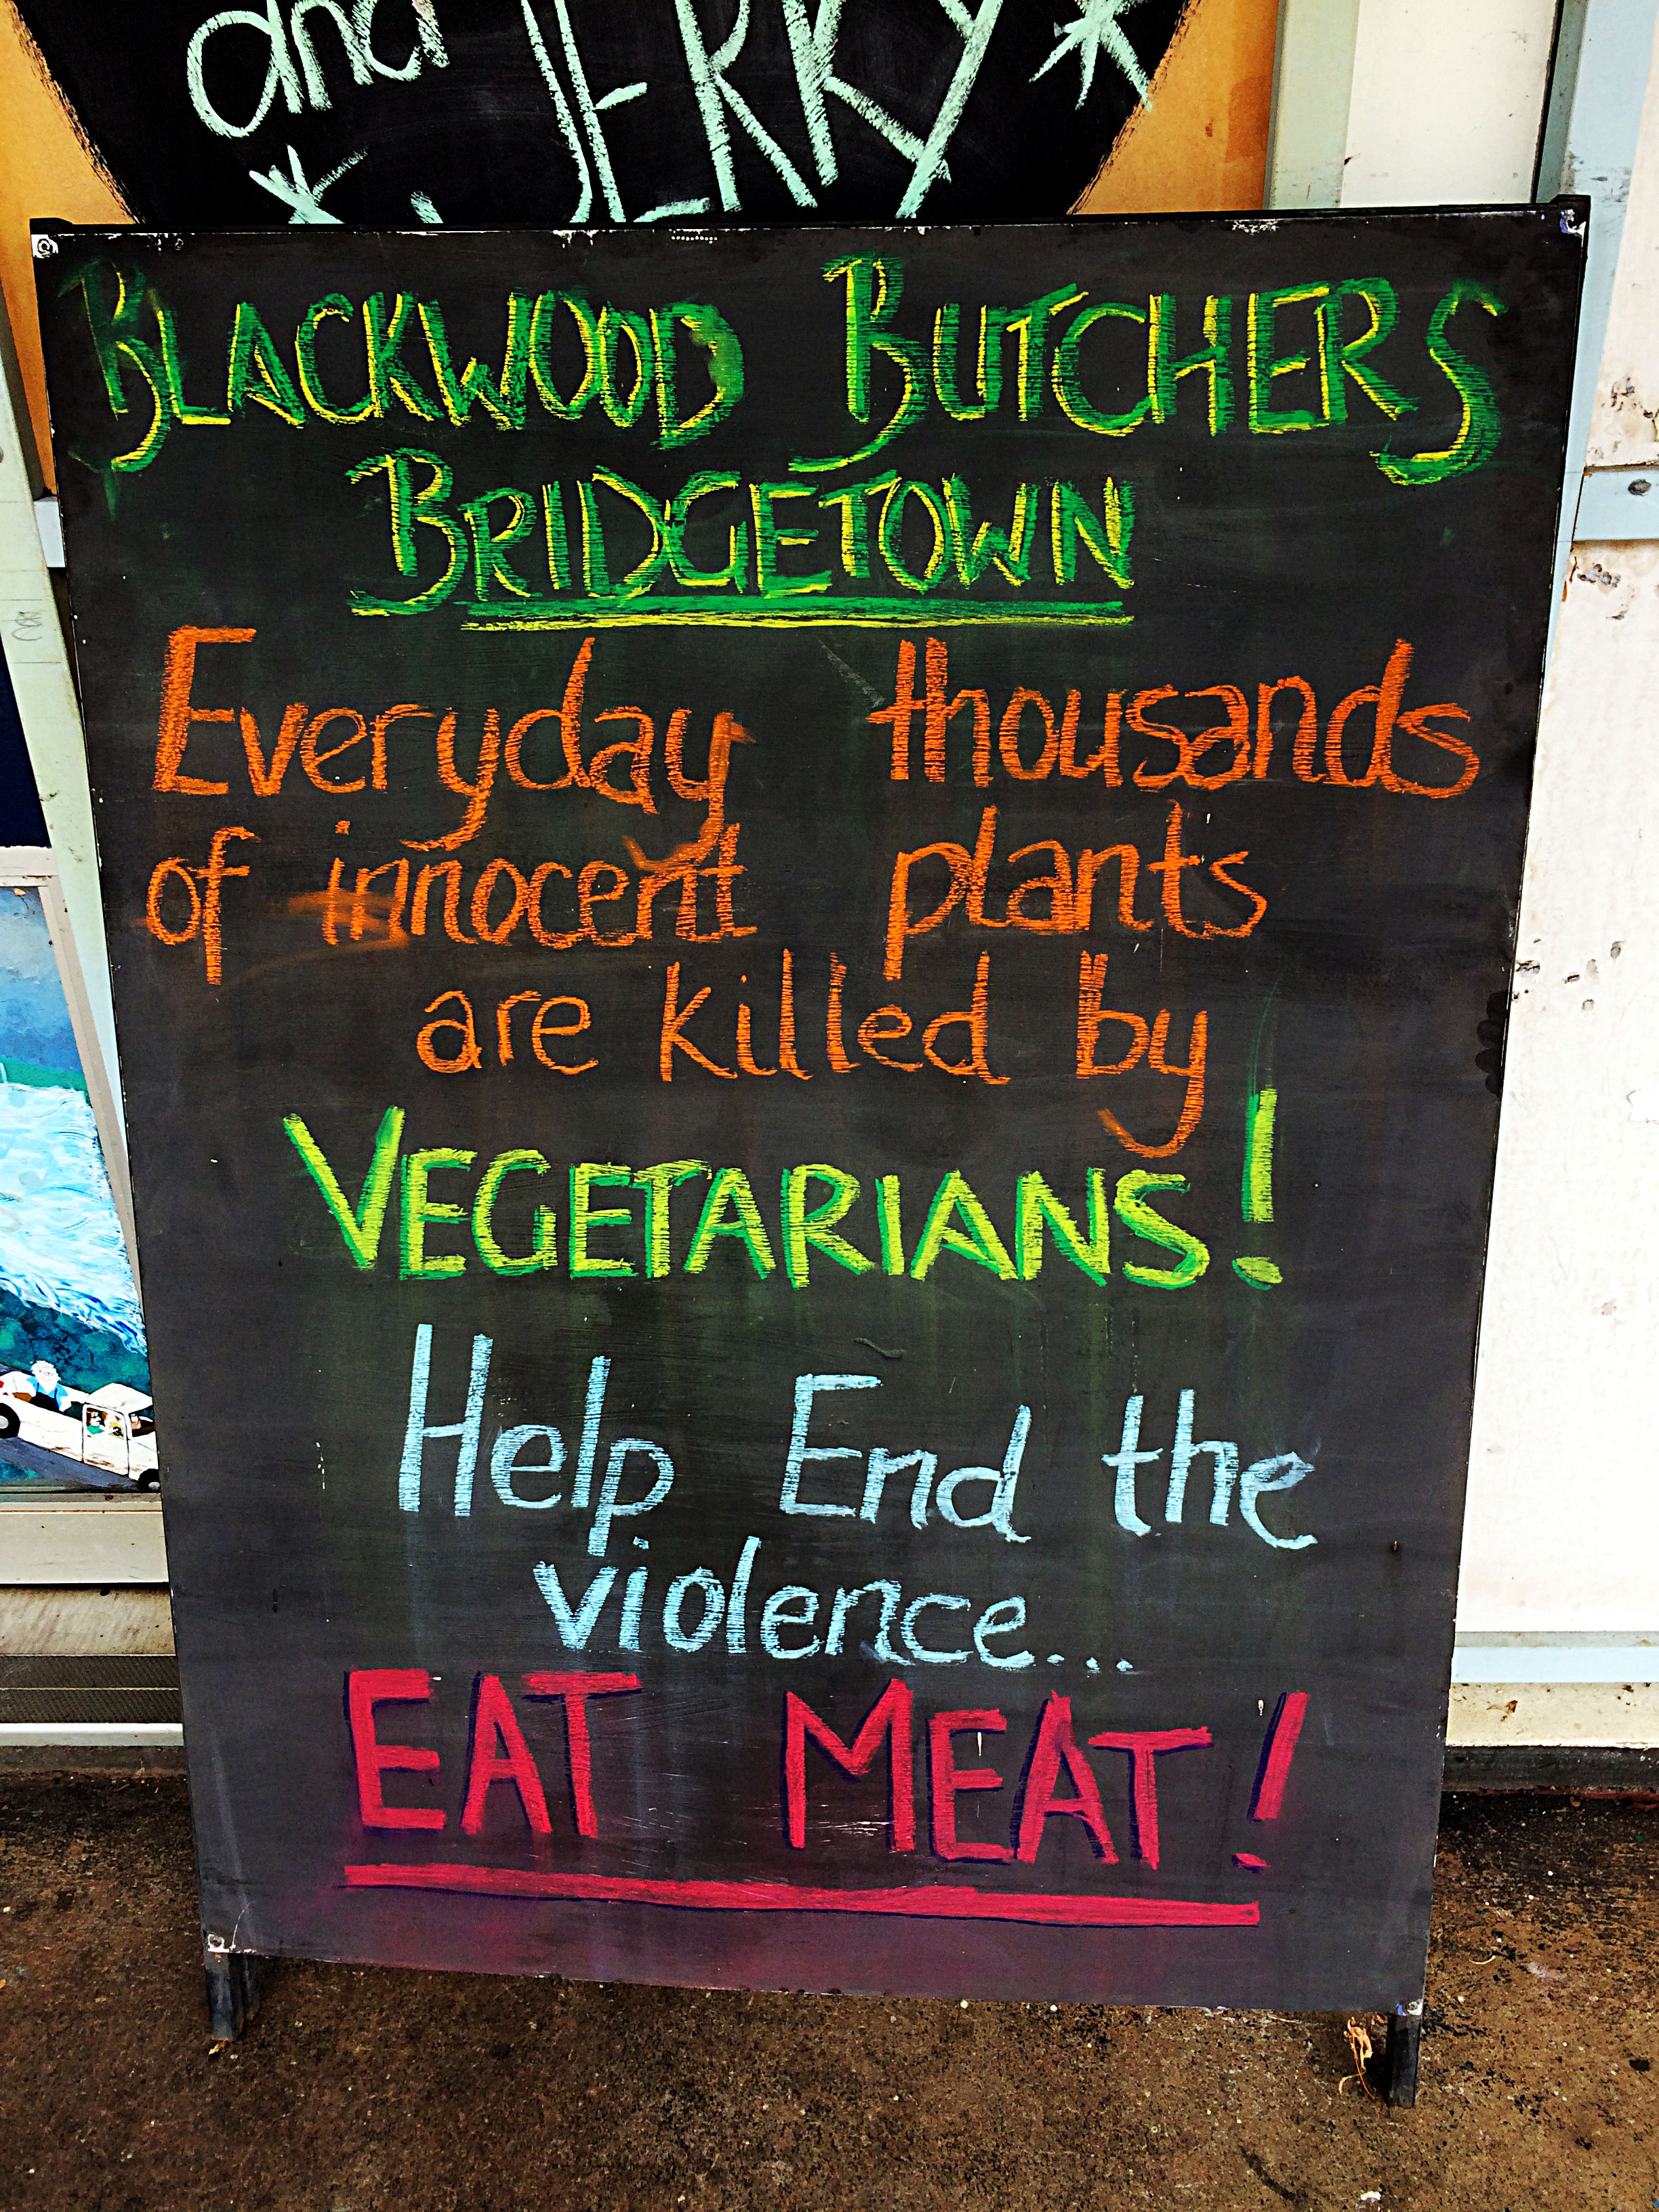 and JERKY
BLACKWOOD BUTCHERS
BRIDGETOWN
Everyday thousands
of innocent plants
are killed by
VEGETARIANS!
Help End the
violence...
EAT MEAT!